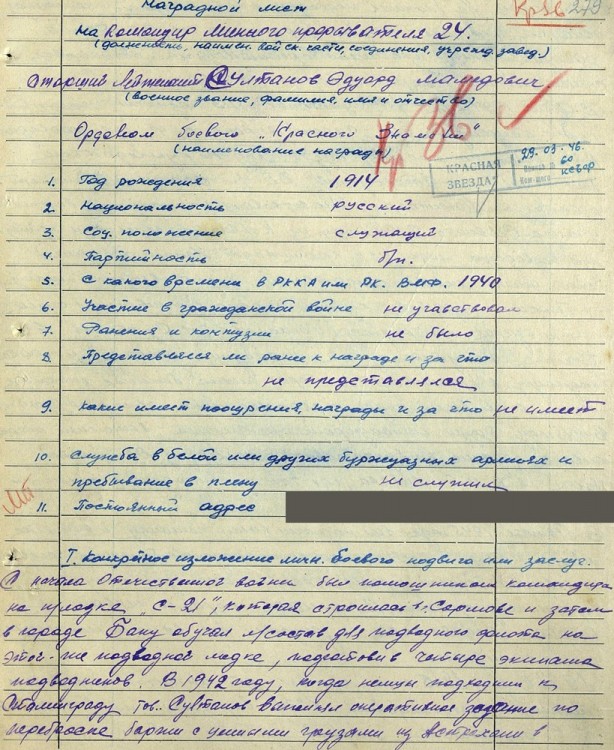 Наградной лист
Кр36 279
На Командир Минного тофрывателя 24.
(должность, наимен. войск. части, соединения, учрежд. завед.)
Старший Лейтенант Султанов Эдуард Мамедович,
(военное звание, фамилия, имя и отчество)
Орденом боевого "Красного Знамени"
(наименование награды)
КРАСНАЯ
ЗВЕЗДА
29.03.46.
60
1. Год рождения 1914
2. Национальность русский
3. Соц. положение служащий
4. Партийность б/п.
5. С какого времени в РККА или РК. ВМФ. 1940
6. Участие в гражданской войне не учавствовал
7. Ранения и контузии не было
8. Представлялся ли ранее к награде и за что
не представлялся
9. Какие имеет поощрения, награды и за что не имеет
10. Служба в белой или других буржуазных армиях и
пребывание в плену не служил
11. Постоянный адрес
I. Конкретное изложение личн. боевого подвига или заслуг.
С начала Отечественной войны был помощником командира
на п/лодке "С-21", которая строилась в г. Сормове и затем
в городе Баку обучал л/состав для подводного флота на
этой-же подводной лодке, подготовив четыре экипажа
подводников. В 1942 году, когда немцы подходили к
Сталинграду тов. Султанов выполнял оперативное задание по
переброске баржи с ценными грузами из Астрахани в